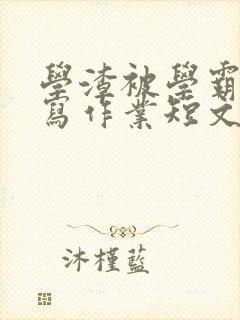 學渣被學霸
寫作業短文
沐槿藍